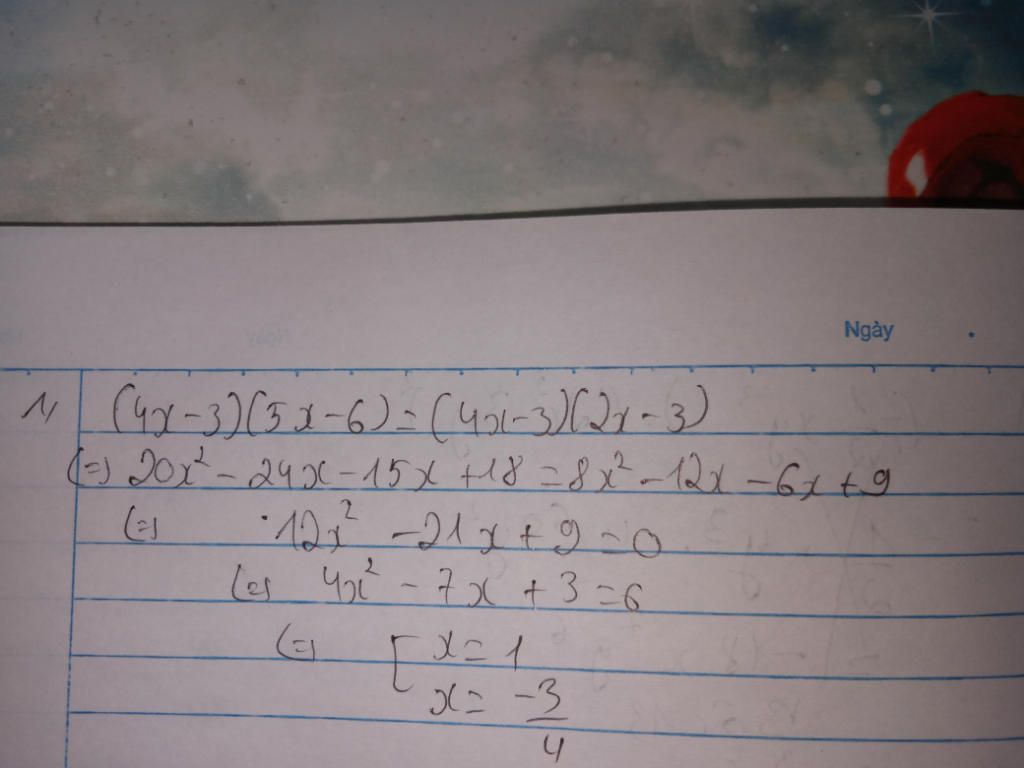 Ngày
1, (4x-3)(5x-6)=(4x-3)(2x-3)
(=) 20x² - 24x - 15x + 18 = 8x² - 12x - 6x + 9
(=) 12x² - 21x + 9 = 0
(=) 4x² - 7x + 3 = 6
(=) [ x = 1
x = -3/4